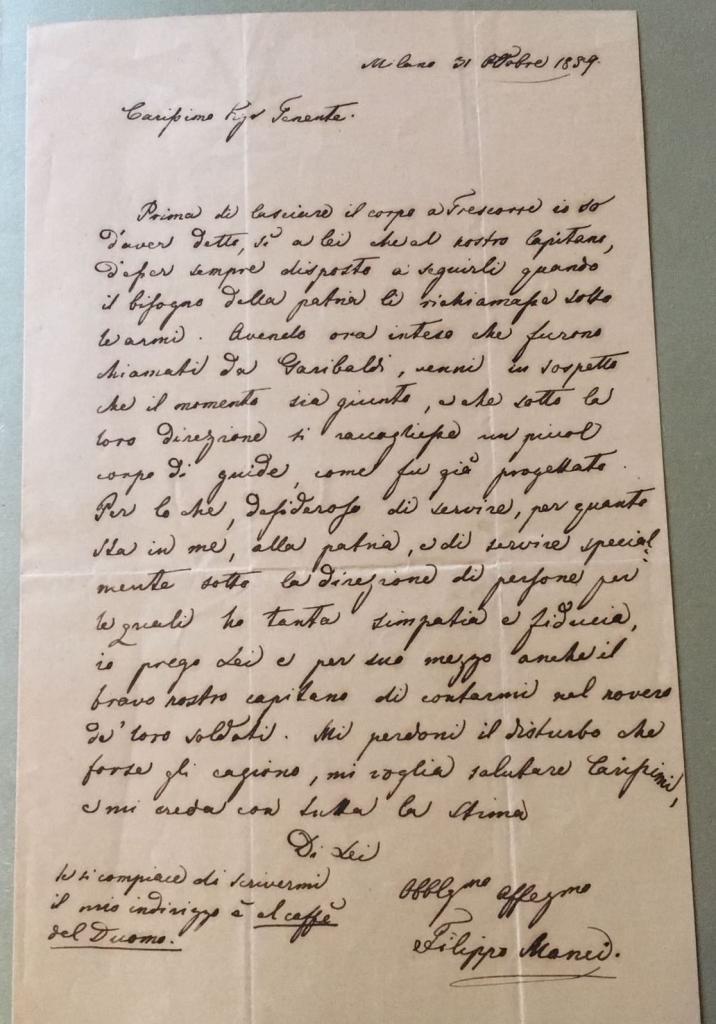 Milano 31 Ottobre 1859.
Carissimo Sigr Tenente.
Prima di lasciare il corpo a Trescorre io so
d'aver detto, sì a lei che al nostro Capitano,
d'esser sempre disposto a seguirli quando
il bisogno della patria li richiamasse sotto
le armi. Avendo ora inteso che furono
chiamati da Garibaldi, venni in sospetto
che il momento sia giunto, e che sotto la
loro direzione si raccogliesse un piccol
corpo di guide, come fu già progettato.
Per lo che, desideroso di servire, per quanto
sta in me, alla patria, e di servire special-
mente sotto la direzione di persone per
le quali ho tanta simpatia e fiducia,
io prego Lei e per suo mezzo anche il
bravo nostro capitano di contarmi nel novero
de' loro soldati. Mi perdoni il disturbo che
forse gli cagiono, mi voglia salutare Carissimi,
e mi creda con tutta la stima
Di Lei
se si compiace di scrivermi
il mio indirizzo è al caffè
del Duomo.
Obblgmo affezmo
Filippo Manci.